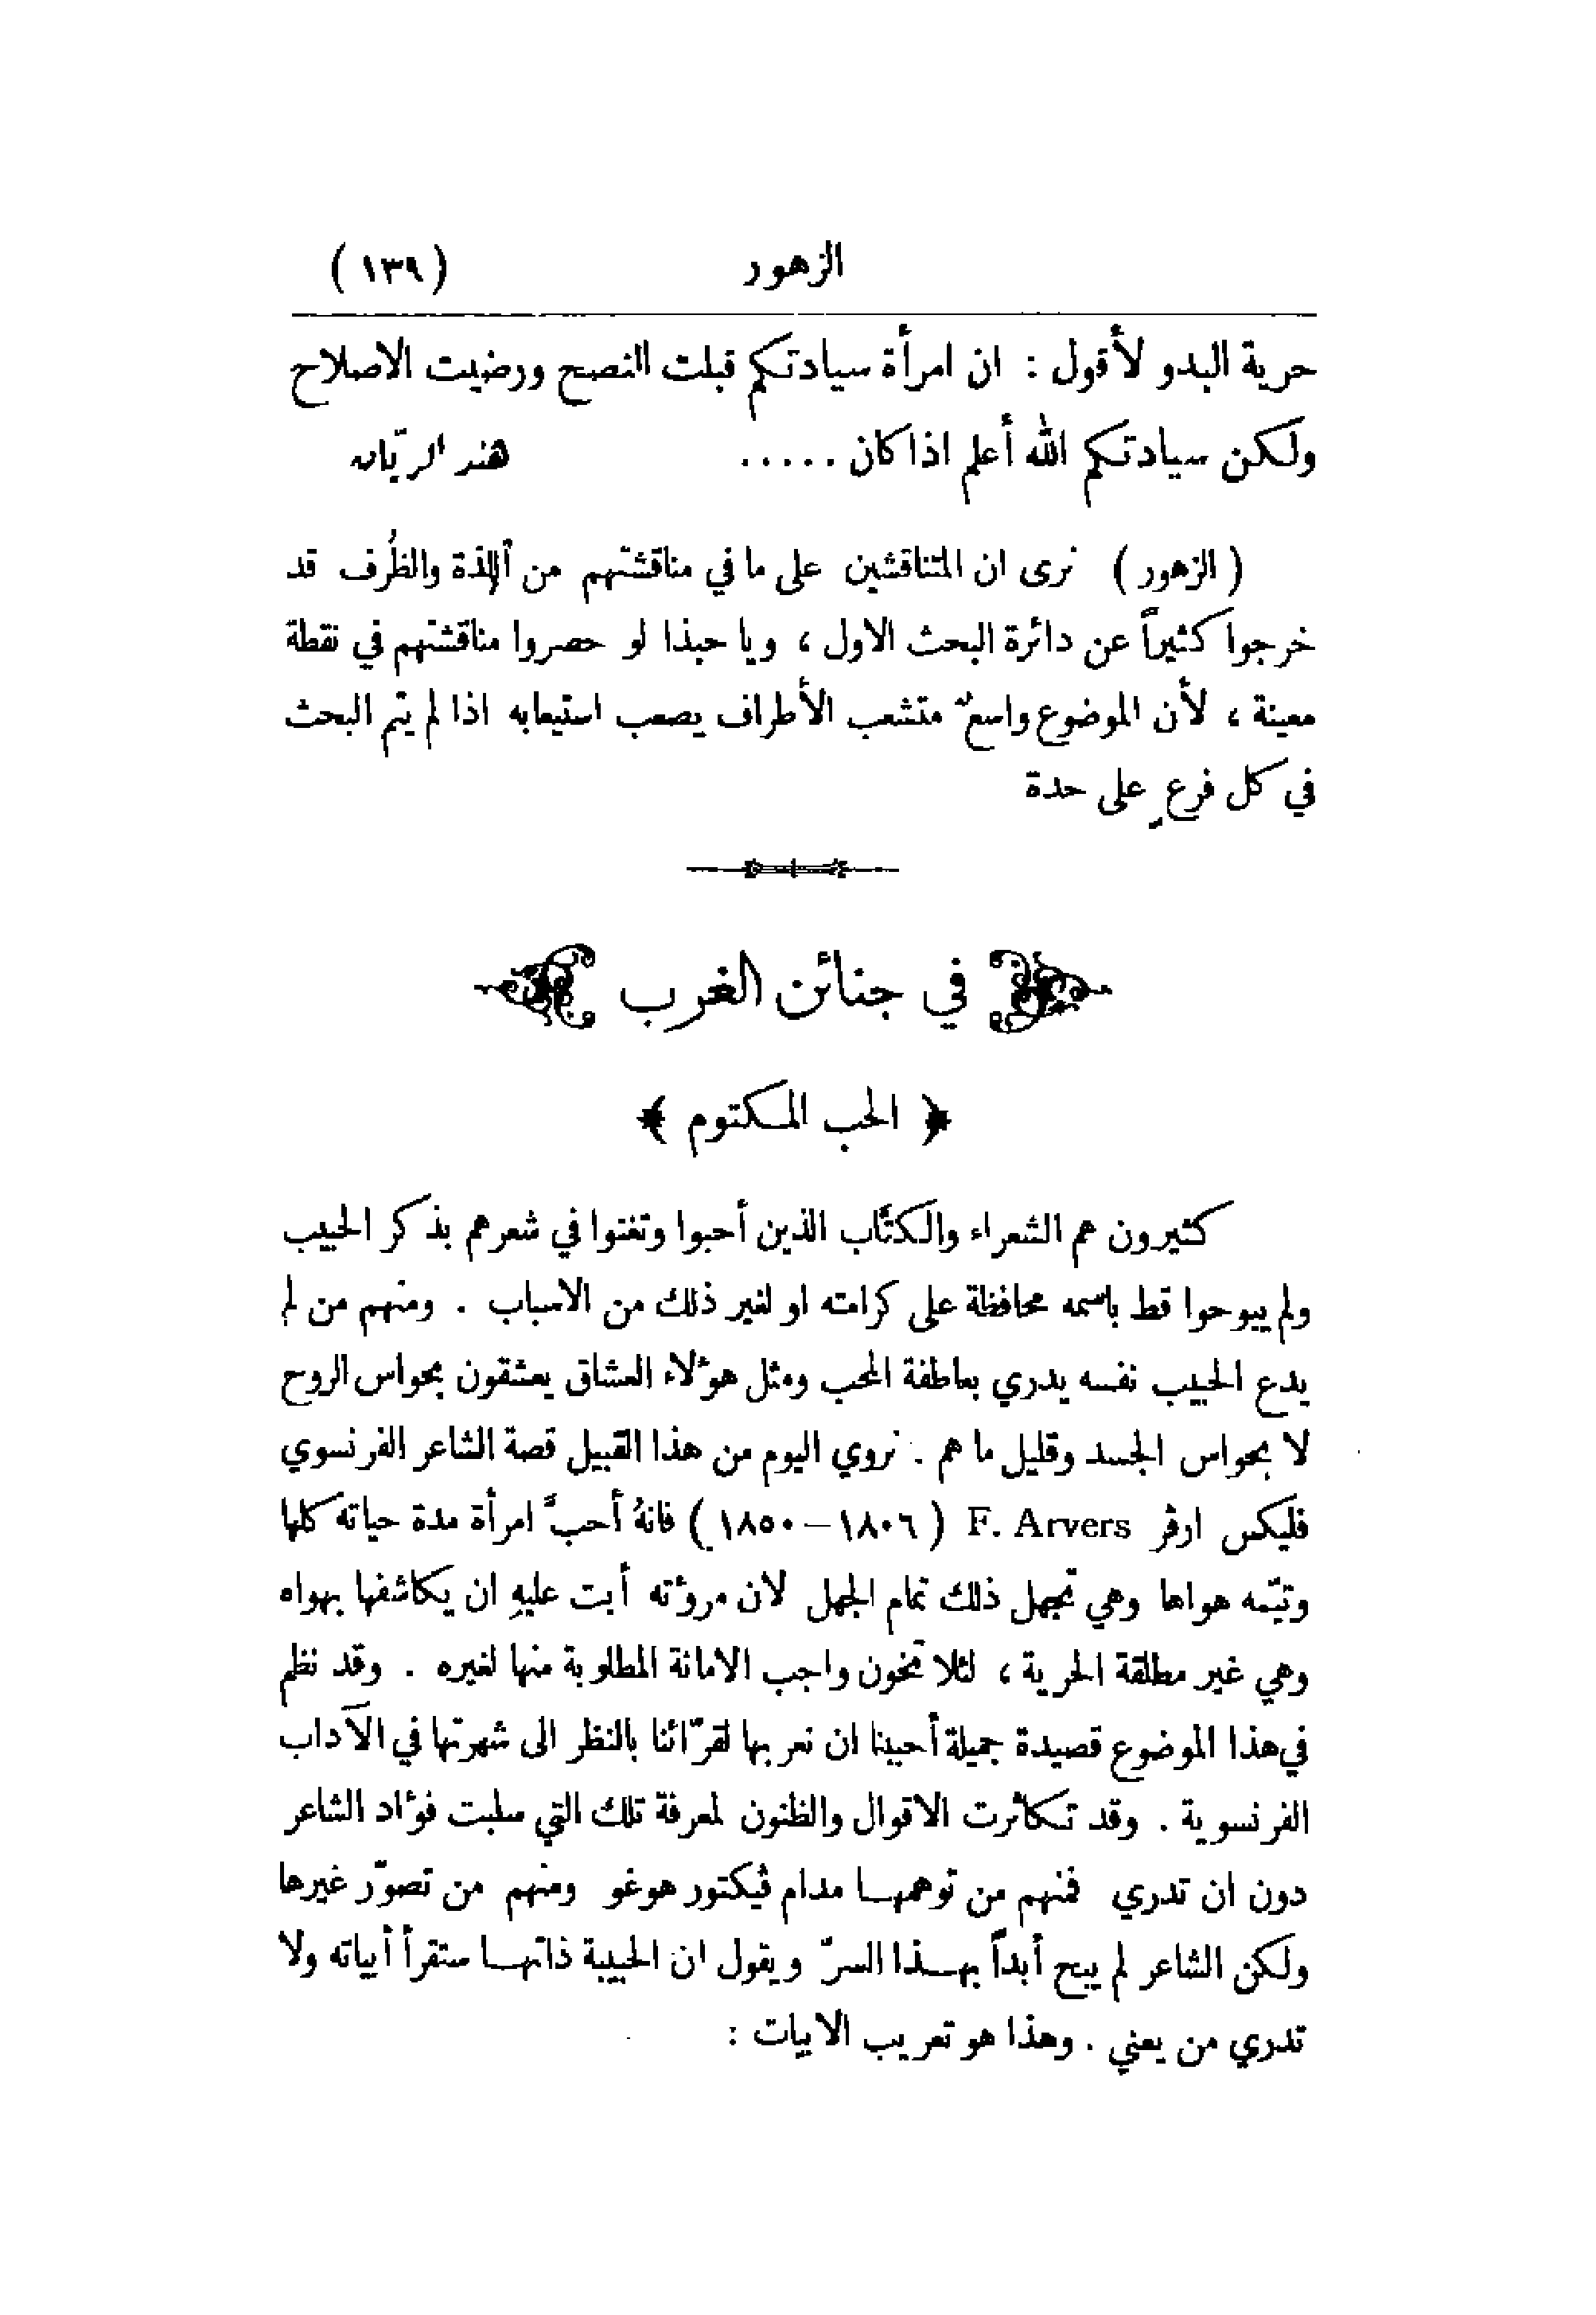 الزهور (١٣٩)
حرية البدو لأقول : ان امرأة سيادتكم قبلت النصح ورضيت الاصلاح
ولكن سيادتكم الله أعلم اذا كان ..... هند الريّان
( الزهور ) نرى ان المتناقشين على ما في مناقشتهم من اللذة والظُرف قد
خرجوا كثيراً عن دائرة البحث الاول ، ويا حبذا لو حصروا مناقشتهم في نقطة
معينة ، لأن الموضوع واسعٌ متشعب الأطراف يصعب استيعابه اذا لم يتم البحث
في كل فرعٍ على حدة
في جنائن الغرب
﴿ الحب المكتوم ﴾
كثيرون هم الشعراء والكتَّاب الذين أحبوا وتغنوا في شعرهم بذكر الحبيب
ولم يبوحوا قط باسمه محافظة على كرامته او لغير ذلك من الاسباب . ومنهم من لم
يدع الحبيب نفسه يدري بعاطفة المحب ومثل هؤلاء العشاق يعشقون بحواس الروح
لا بحواس الجسد وقليل ما هم . نروي اليوم من هذا القبيل قصة الشاعر الفرنسوي
فليكس ارڤر F. Arvers ( ١٨٠٦ – ١٨٥٠ ) فانهُ أحبَّ امرأة مدة حياته كلها
وتيّمه هواها وهي تجهل ذلك تمام الجهل لان مروءته أبت عليهِ ان يكاشفها بهواه
وهي غير مطلقة الحرية ، لئلا تخون واجب الامانة المطلوبة منها لغيره . وقد نظم
في هذا الموضوع قصيدة جميلة أحببنا ان نعربها لقرّائنا بالنظر الى شهرتها في الآداب
الفرنسوية . وقد تكاثرت الاقوال والظنون لمعرفة تلك التي سلبت فؤاد الشاعر
دون ان تدري فمنهم من توهمها مدام ڤيكتور هوغو ومنهم من تصوّر غيرها
ولكن الشاعر لم يبح أبداً بهذا السرّ ويقول ان الحبيبة ذاتها ستقرأ أبياته ولا
تدري من يعني . وهذا هو تعريب الابيات :